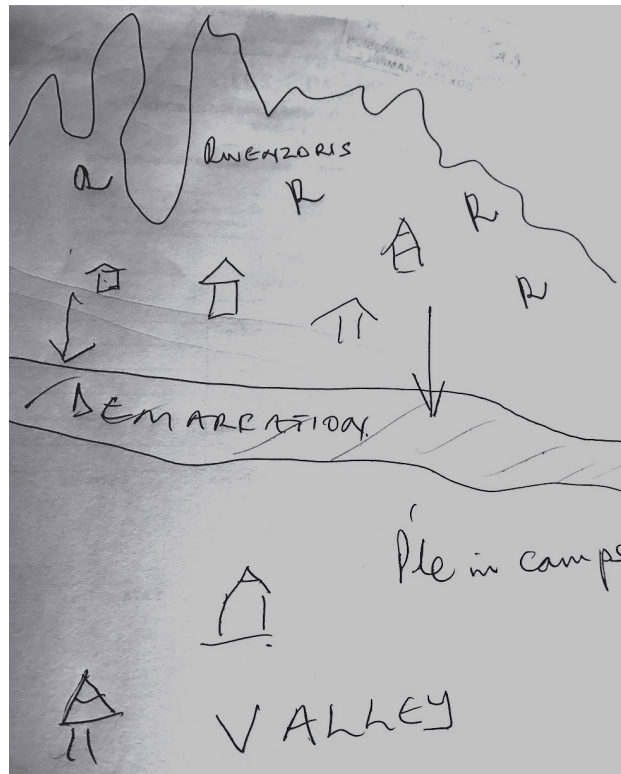 RWENZORIS
R
R
R
R
DEMARCATION.
Ple in camps
VALLEY